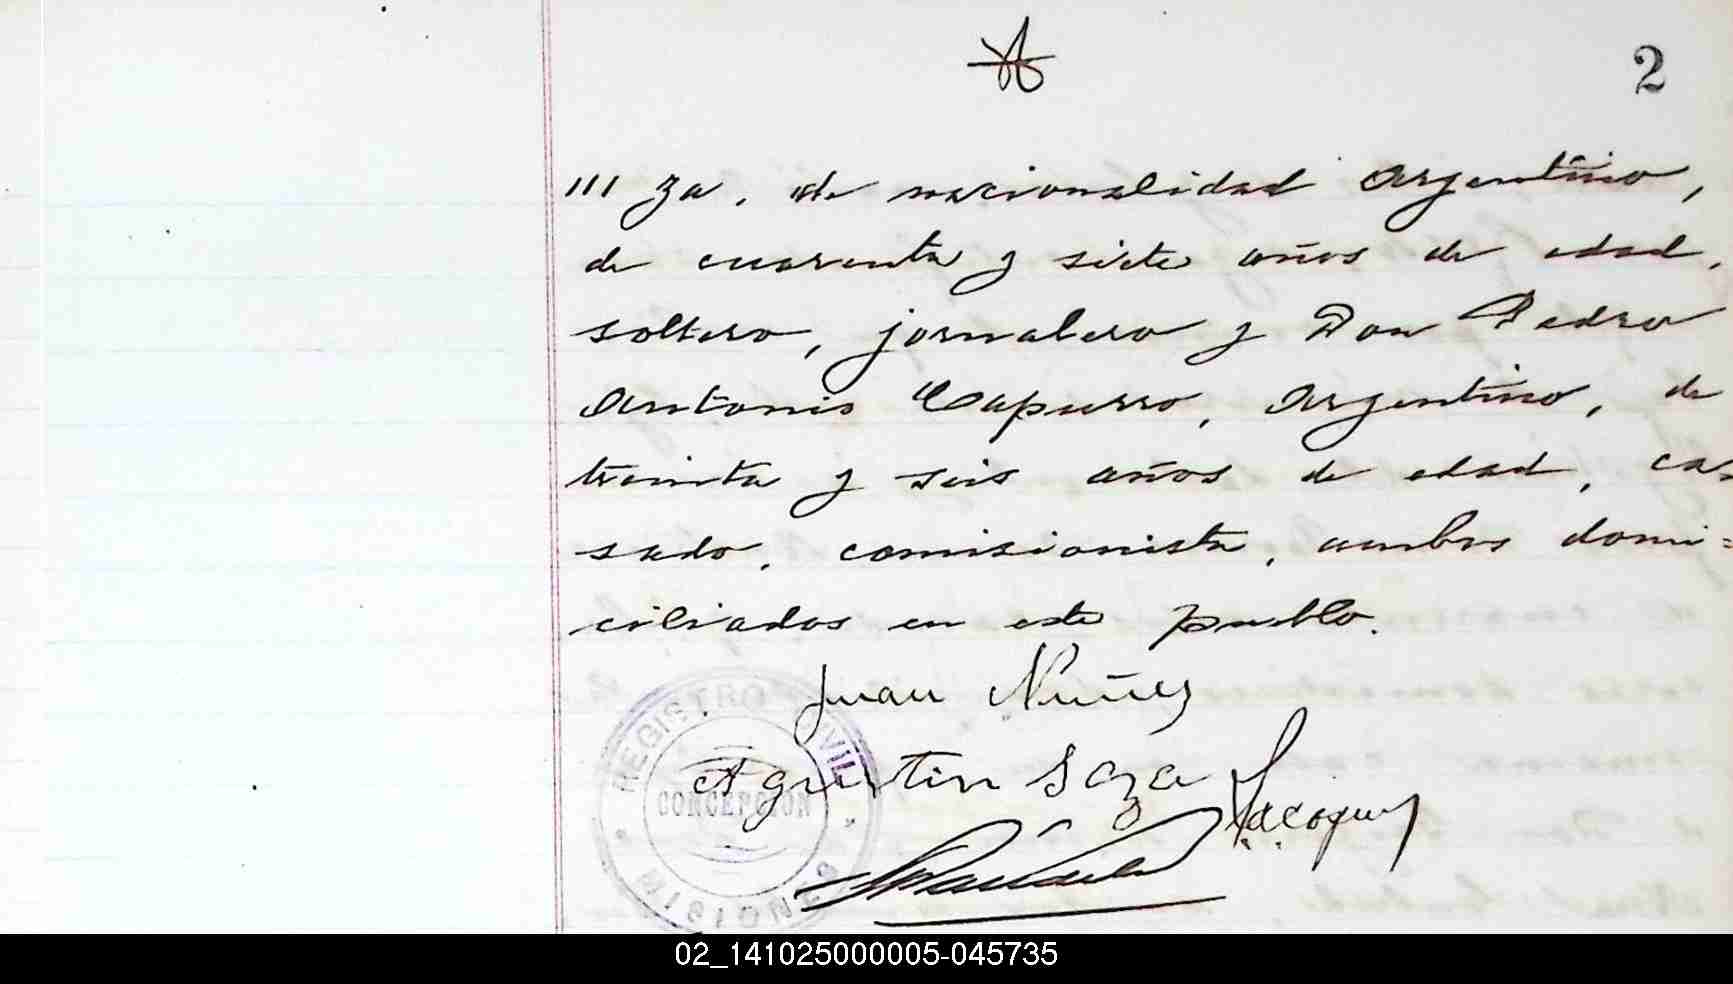 2
III za, de nacionalidad Argentino,
de cuarenta y siete años de edad,
soltero, jornalero y Don Pedro
Antonio Capurro, Argentino, de
treinta y seis años de edad, ca-
sado, comisionista, ambos domi=
ciliados en este pueblo.
Juan Nuñez
REGISTRO CIVIL
Agustin Saza
CONCEPCION
MISIONES
02_141025000005-045735